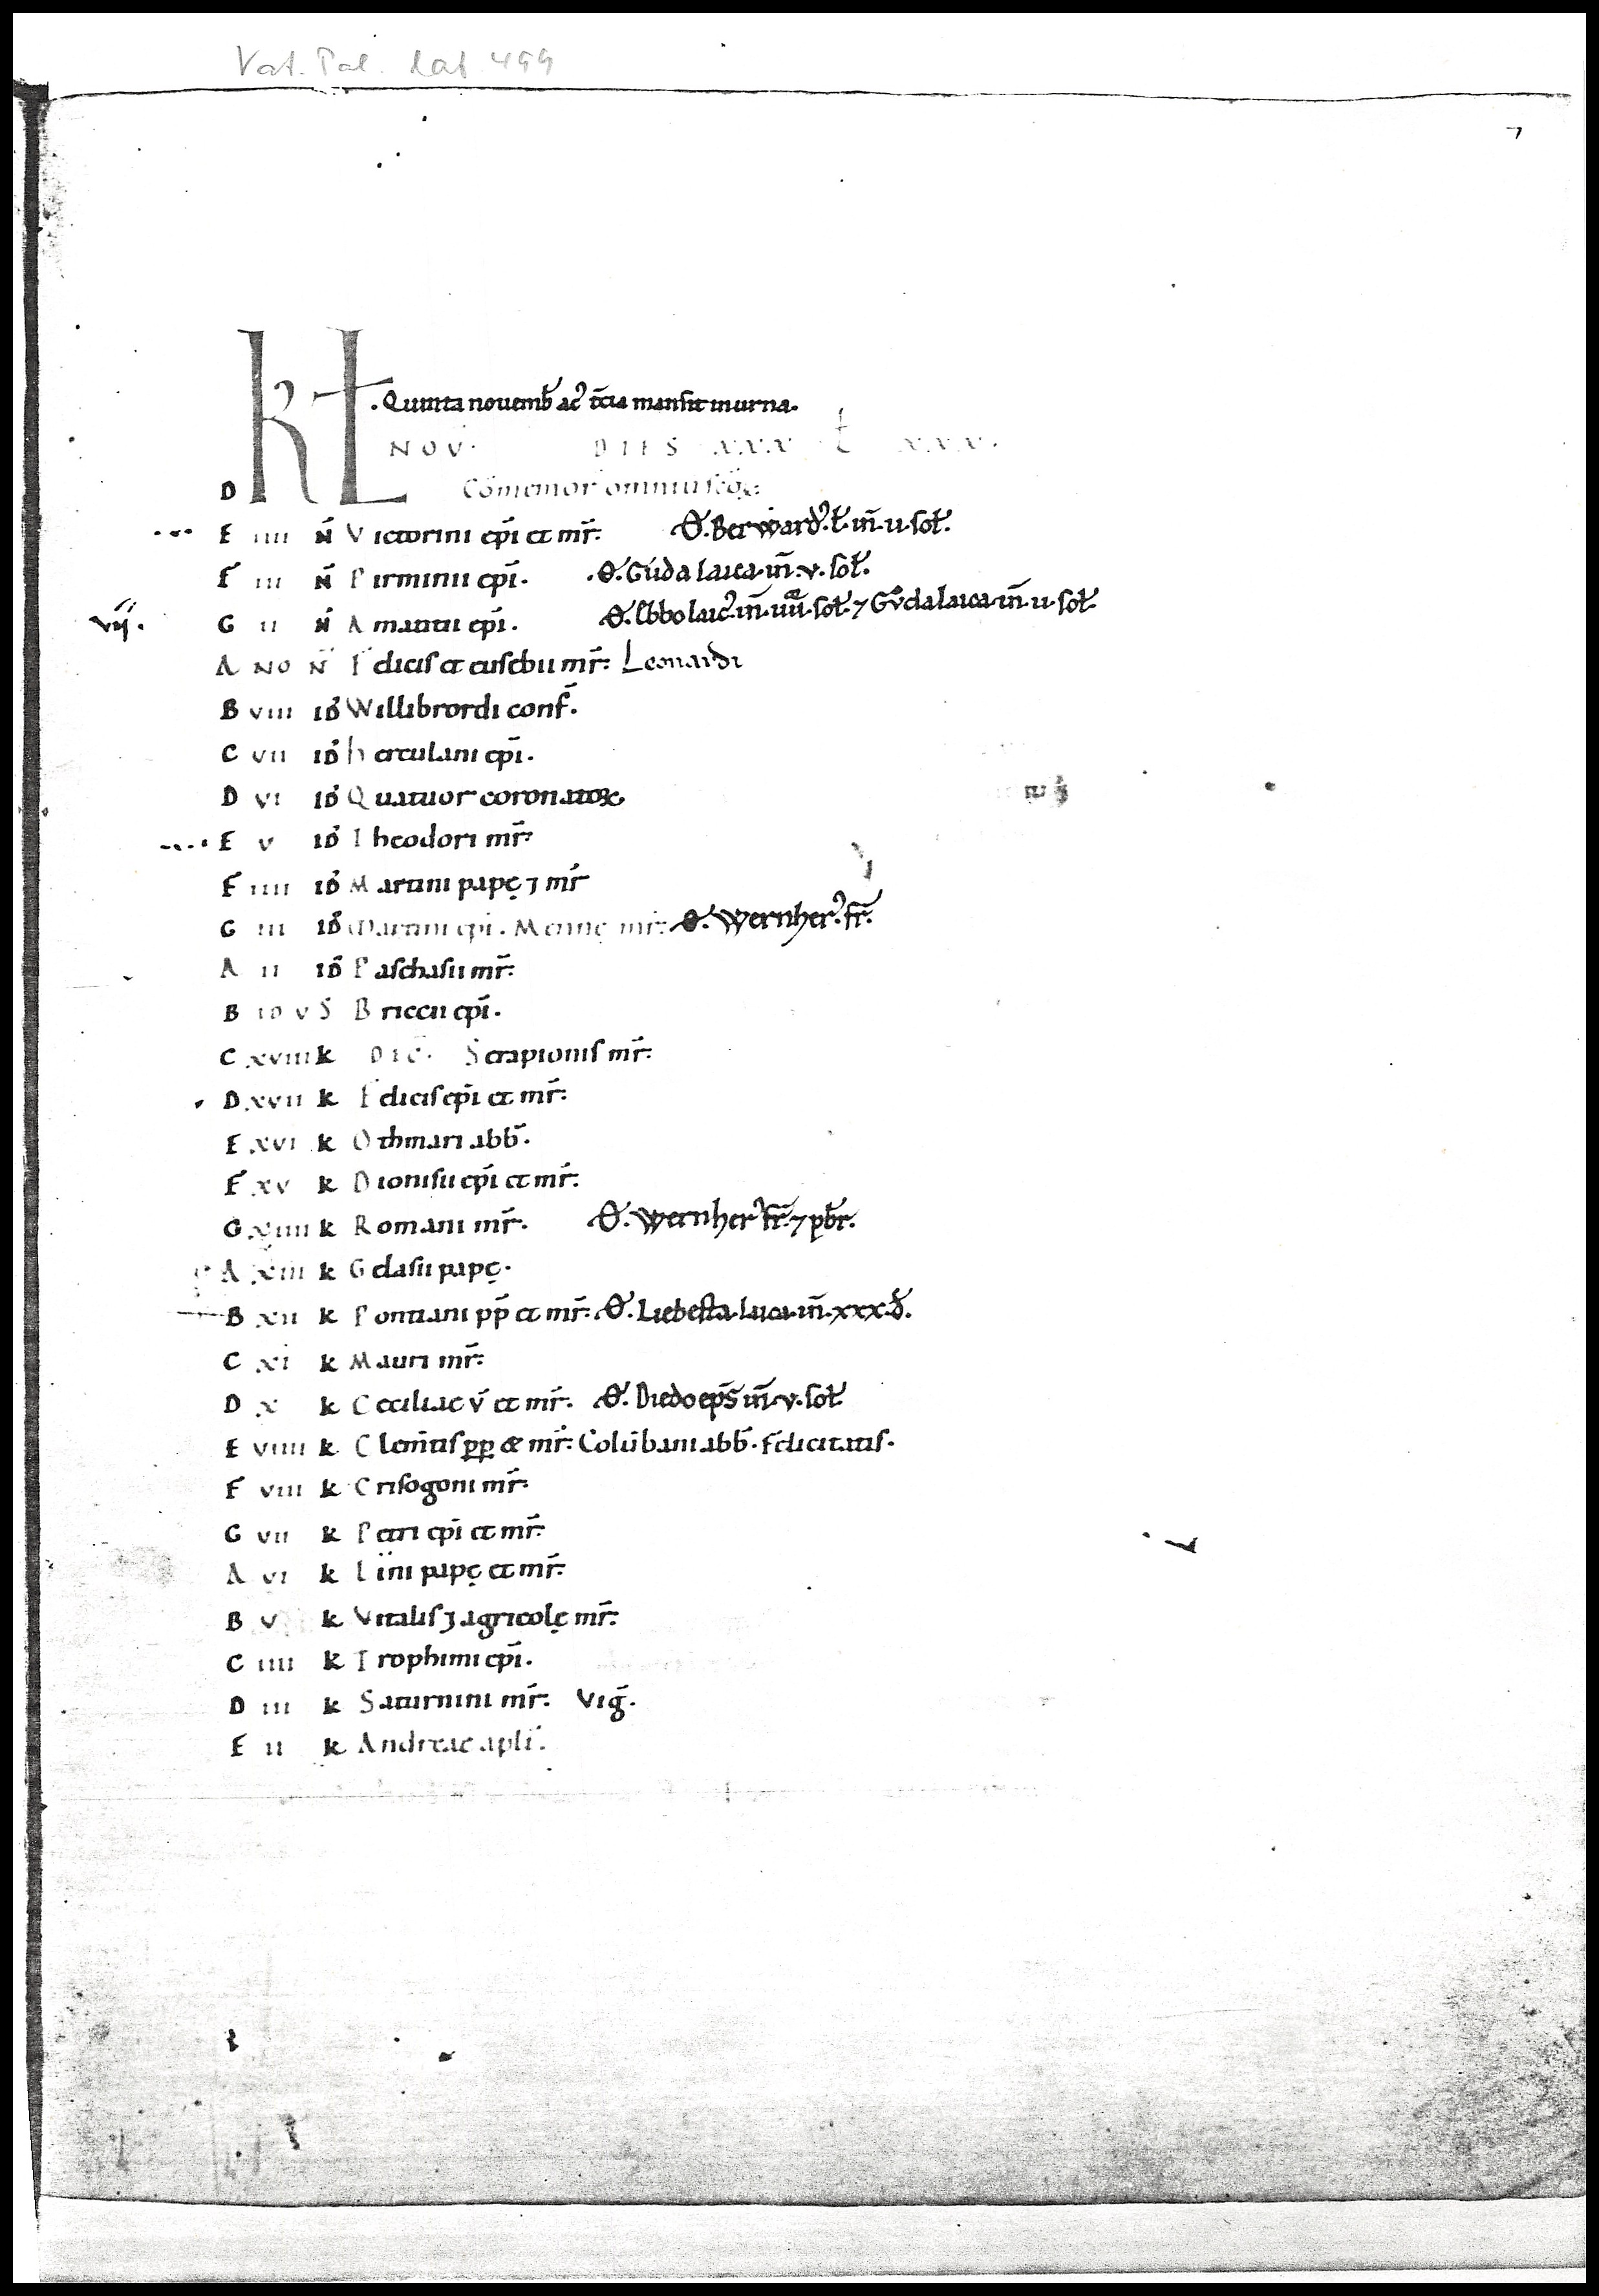 Vat. Pal. lat. 499
7
KL
.Quinta novemb̄ ac᷒ t̄cia mansit in urna.
NOV. DIES XXX L XXX.
D Cōmemor omniū sc̄oꝝ
E IIII N̄ Victorini ep̄i et mr̄. Ꝋ. Berward᷒. ł. in̄. u. soł.
F III N̄ Pirminii ep̄i. .Ꝋ. Gúda laica. in̄. v. soł.
vij. G II N̄ Amantii ep̄i. Ꝋ. Ebbo laic᷒. in̄. uu. soł. ⁊ Gůda laica. in̄. u. soł.
A NO N̄ Felicis et eusebii mr̄. Leonardi
B VIII ID̄ Willibrordi conf̄.
C VII ID̄ herculani ep̄i.
D VI ID̄ Quatuor coronatoꝝ
E V ID̄ Theodori mr̄
F IIII ID̄ Martini papę ⁊ mr̄
G III ID̄ Martini ep̄i. Mennę mr̄. Ꝋ. Wernher᷒. fr̄.
A II ID̄ Paschasii mr̄.
B IDVS Briccii ep̄i.
C XVIII k DEC. Serapionis mr̄.
D XVII k Felicis ep̄i et mr̄.
E XVI k Othmari abb̄.
F XV k Dionisii ep̄i et mr̄.
G XIIII k Romani mr̄. Ꝋ. Wernher᷒ fr̄. ⁊ pb̄r.
A XIII k Gelasii papę.
B XII k Pontiani pp̄ et mr̄. Ꝋ. Liebesta. laica. in̄. xxx. đ.
C XI k Mauri mr̄.
D X k Ceciliae v̄ et mr̄. Ꝋ. Diedo ep̄s in̄. v. soł
E VIIII k Clem̄tis pp & mr̄. Colūbani abb̄. Felicitatis.
F VIII k Crisogoni mr̄.
G VII k Petri ep̄i et mr̄.
A VI k Lini papę et mr̄.
B V k Vitalis ⁊ agricolę mr̄.
C IIII k Trophimi ep̄i.
D III k Saturnini mr̄. Viḡ.
E II k Andreae apl̄i.